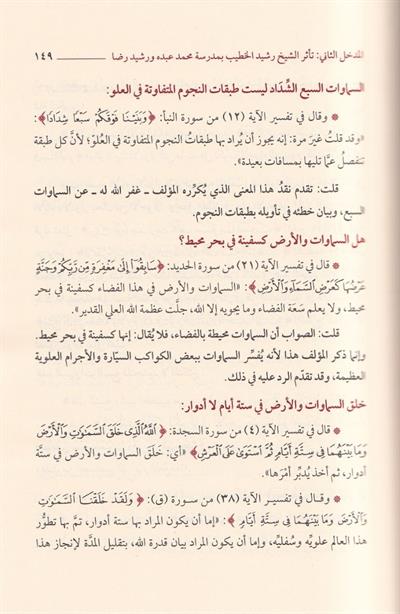 المدخل الثاني: تأثر الشيخ رشيد الخطيب بمدرسة محمد عبده ورشيد رضا ــــــــ ١٤٩
السماوات السبع الشِّداد ليست طبقات النجوم المتفاوتة في العلو:
* وقال في تفسير الآية (١٢) من سورة النبأ: ﴿وَبَنَيْنَا فَوْقَكُمْ سَبْعًا شِدَادًا﴾:
«وقد قلتُ غيرَ مرة: إنه يجوز أن يُراد بها طبقاتُ النجوم المتفاوتة في العُلوّ؛ لأنَّ كل طبقة
تنفصلُ عمَّا تليها بمسافات بعيدة».
قلت: تقدم نقدُ هذا المعنى الذي يُكرِّره المؤلف ـ غفر الله له ـ عن السماوات
السبع، وبيان خطئه في تأويله بطبقات النجوم.
هل السماوات والأرض كسفينة في بحر محيط؟
* قال في تفسير الآية (٢١) من سورة الحديد: ﴿سَابِقُوٓا۟ إِلَىٰ مَغْفِرَةٍ مِّن رَّبِّكُمْ وَجَنَّةٍ
عَرْضُهَا كَعَرْضِ ٱلسَّمَآءِ وَٱلْأَرْضِ﴾: «السماوات والأرض في هذا الفضاء كسفينة في بحر
محيط، ولا يعلم سَعَة الفضاء وما يحويه إلا الله، جلَّت عظمة الله العلي القدير».
قلت: الصواب أن السماوات محيطة بالفضاء، فلا يُقال: إنها كسفينة في بحر.
وإنما ذكر المؤلف هذا لأنه يُفسِّر السماوات ببعض الكواكب السيّارة والأجرام العلوية
العظيمة، وقد تقدّم الرد عليه في ذلك.
خلق السماوات والأرض في ستة أيام لا أدوار:
* قال في تفسير الآية (٤) من سورة السجدة: ﴿ٱللَّهُ ٱلَّذِى خَلَقَ ٱلسَّمَٰوَٰتِ وَٱلْأَرْضَ
وَمَا بَيْنَهُمَا فِى سِتَّةِ أَيَّامٍ ثُمَّ ٱسْتَوَىٰ عَلَى ٱلْعَرْشِ﴾ «أي: خَلَق السماوات والأرض في ستّة
أدوار، ثم أخذ يُدبِّر أمْرَها».
* وقال في تفسير الآية (٣٨) من سورة (ق): ﴿وَلَقَدْ خَلَقْنَا ٱلسَّمَٰوَٰتِ
وَٱلْأَرْضَ وَمَا بَيْنَهُمَا فِى سِتَّةِ أَيَّامٍ﴾: «إما أن يكون المراد بها ستة أدوار، تمّ بها تطوُّر
هذا العالم علويِّه وسُفليِّه، وإما أن يكون المراد بيان قدرة الله، بتقليل المدَّة لإنجاز هذا